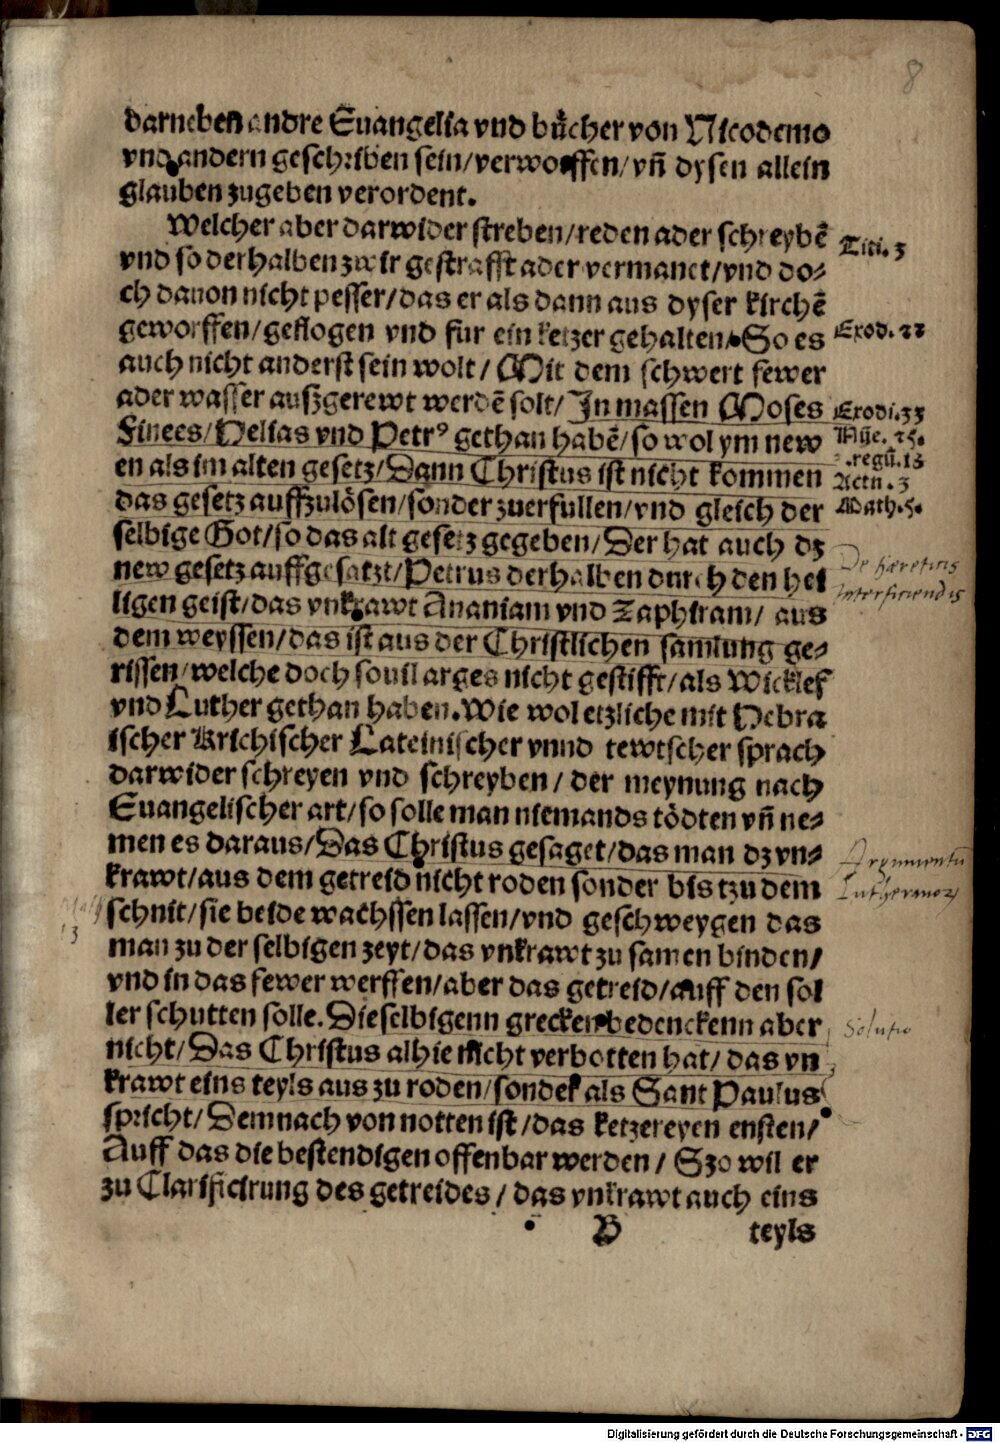 8
darneben andre Euangelia vnd bücher von Nicodemo
vnd andern geschriben sein/verworffen/vñ dysen allein
glauben zugeben verordent.
Welcher aber darwider streben/reden ader schreybẽ
Titi. 3
vnd so derhalben zwir gestrafft ader vermanet/vnd do⸗
ch dauon nicht pesser/das er als dann aus dyser kirchẽ
geworffen/geflogen vnd fur ein ketzer gehalten/ So es
Exod. 22
auch nicht anderst sein wolt/ Mit dem schwert fewer
ader wasser außgerewt werdẽ solt/ In massen Moses
Exodi. 33
Finees/Helias vnd Petrꝰ gethan habẽ/so wol ym new
Nũe. 25.
en als im alten gesetz/Dann Christus ist nicht kommen
.regũ. 18
Actu. 3
das gesetz auffzulösen/sonder zuerfullen/vnd gleich der
Math. 5.
selbige Got/so das alt gesetz gegeben/Der hat auch dz
new gesetz auffgesatzt/Petrus derhalben durch den hei
De hæreticis
interficiendis
ligen geist/das vnkrawt Ananiam vnd Zaphiram/ aus
dem weyssen/das ist aus der Christlichen samlung ge⸗
rissen/welche doch souil arges nicht gestifft/als Wicklef
vnd Luther gethan haben. Wie wol etzliche mit Hebra
ischer Krichischer Lateinischer vnnd tewtscher sprach
darwider schreyen vnd schreyben/ der meynung nach
Euangelischer art/so solle man niemands tödten vñ ne⸗
men es daraus/Das Christus gesaget/das man dz vn⸗
Argumentũ
krawt/aus dem getreid nicht roden sonder bis tzu dem
13
schnit/sie beide wachssen lassen/vnd geschweygen das
man zu der selbigen zeyt/das vnkrawt zu samen binden/
vnd in das fewer werffen/aber das getreid/auff den sol
ler schutten solle. Dieselbigenn grecken bedenckenn aber
Solutio
nicht/ Das Christus alhie nicht verbotten hat/ das vn
krawt eins teyls aus zu roden/sonder als Sant Paulus
spricht/Demnach von notten ist/das ketzereyen ensten/
Auff das die bestendigen offenbar werden/ Szo wil er
zu Clarificirung des getreides/ das vnkrawt auch eins
B
teyls
Digitalisierung gefördert durch die Deutsche Forschungsgemeinschaft - DFG